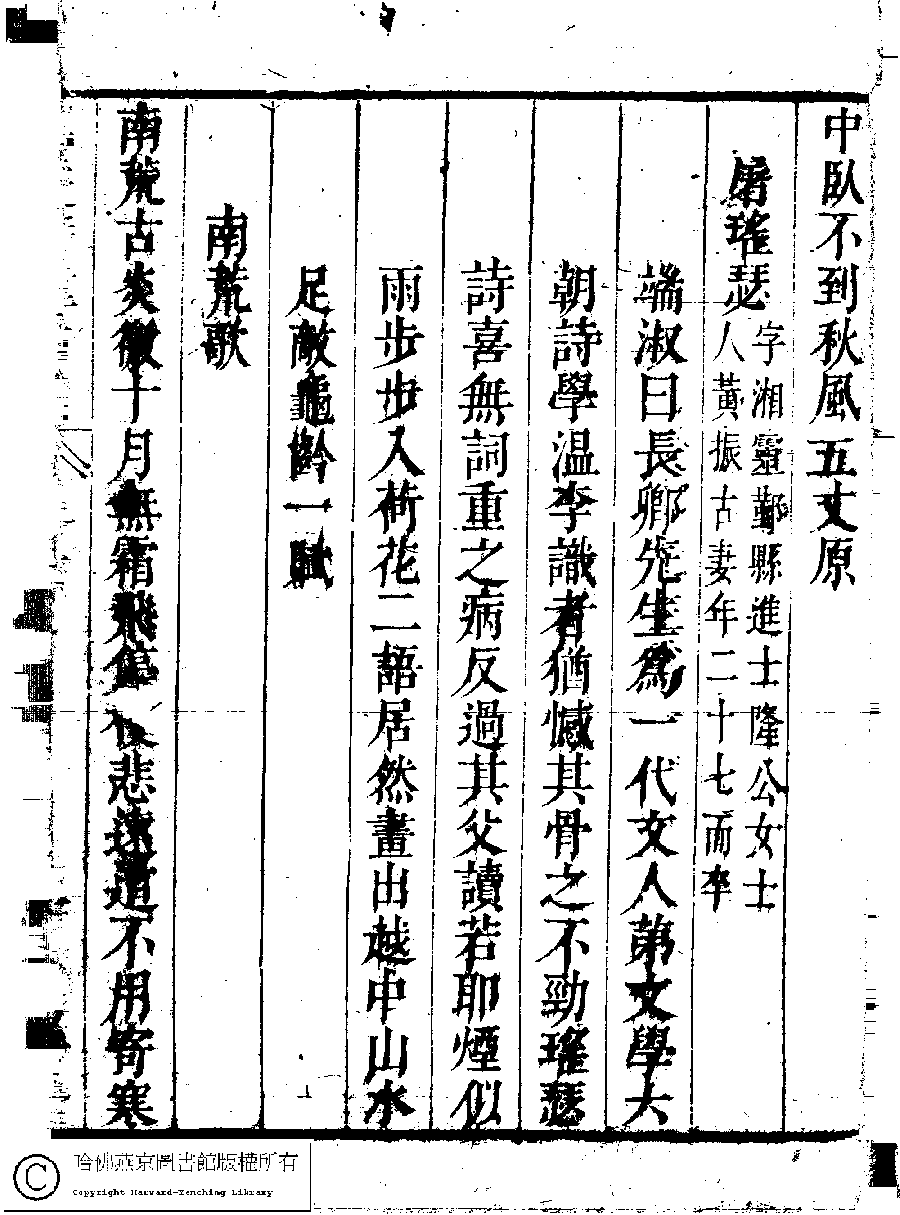 中臥不到秋風五丈原
屠瑤瑟
字湘靈鄞縣進士隆公女士
人黃振古妻年二十七而卒
端淑曰長卿先生爲一代文人第文學大
朝詩學温李識者猶憾其骨之不勁瑤瑟
詩喜無詞重之病反過其父讀若耶煙似
雨步步入荷花二語居然畫出越中山水
足敵龜齡一賦
南荒歌
南荒古炎徼十月無霜飛停 悲遠道不用寄寒
哈佛燕京圖書館版權所有
Copyright Harvard-Yenching Library